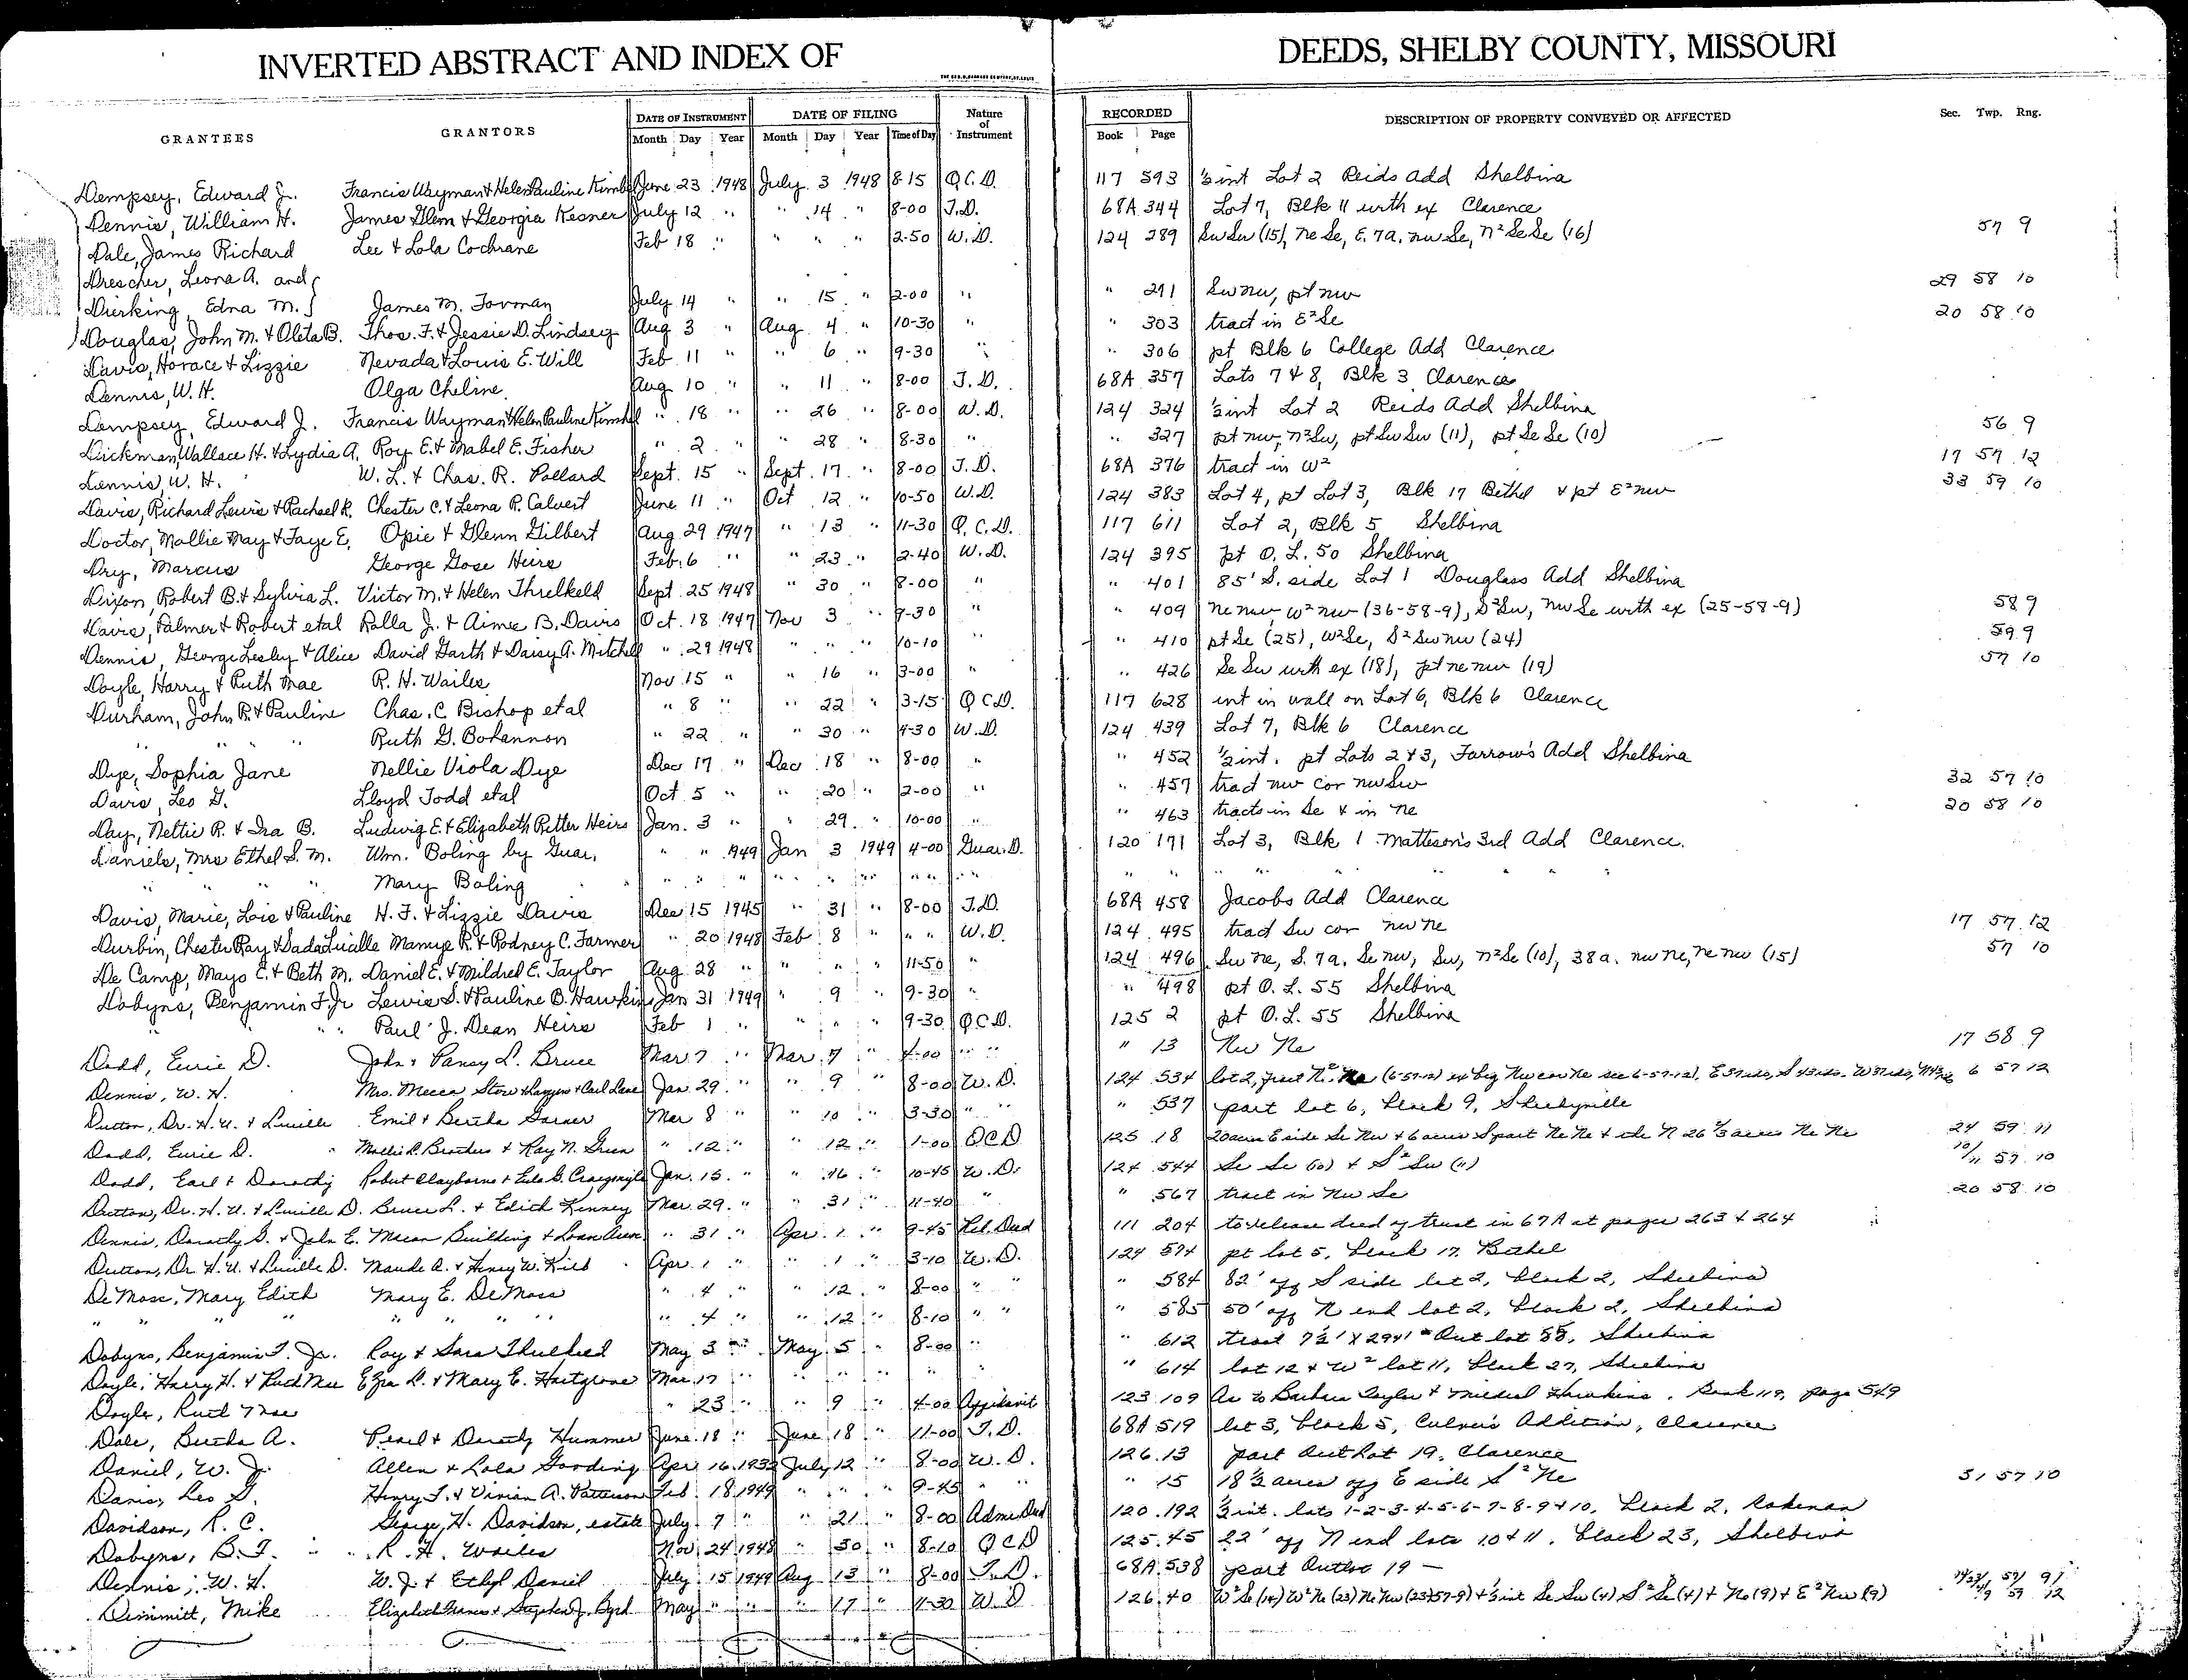 INVERTED ABSTRACT AND INDEX OF DEEDS, SHELBY COUNTY, MISSOURI
GRANTEES GRANTORS DATE OF INSTRUMENT DATE OF FILING Nature of Instrument RECORDED DESCRIPTION OF PROPERTY CONVEYED OR AFFECTED Sec. Twp. Rng.
Month Day Year Month Day Year Time of Day Book Page
Dempsey, Edward J. Francis Wayman & Helen Pauline June 23 1948 July 3 1948 8-15 Q.C.D. 117 593 ½ int Lot 2 Reids Add Shelbina
Dennis, William H. James Glenn & Georgia Kesner July 12 " " 14 " 8-00 T.D. 68A 344 Lot 7, Blk 11 with ex Clarence
Dale, James Richard Lee & Lola Cochrane Feb 18 " " " " 2-50 W.D. 124 289 Sw Sw (15), Ne Se, E. 7a. nw Se, N² Se Se (16) 57 9
Drescher, Leona A. and
Dierking, Edna M. James M. Forman July 14 " " 15 " 2-00 " " 291 Sw nw, pt nw 29 58 10
Douglas, John M. & Oleta B. Thos. F. & Jessie D. Lindsey Aug 3 " Aug 4 " 10-30 " " 303 tract in E² Se 20 58 10
Davis, Horace & Lizzie Nevada & Louis E. Will Feb 11 " " 6 " 9-30 " " 306 pt Blk 6 College Add Clarence
Dennis, W. H. Olga Cheline Aug 10 " " 11 " 8-00 T.D. 68A 357 Lots 7 & 8, Blk 3 Clarence
Dempsey, Edward J. Francis Wayman & Helen Pauline " 18 " 26 " 8-00 W.D. 124 324 ½ int Lot 2 Reids Add Shelbina
Dickman, Wallace H. & Lydia A. Roy E. & Mabel E. Fisher " 2 " " 28 " 8-30 " " 327 pt nw, N² Sw, pt Sw Sw (11), pt Se Se (10) 56 9
Dennis, W. H. W. L. & Chas. R. Pollard Sept. 15 " Sept. 17 " 8-00 T.D. 68A 376 tract in W² 17 57 12
Davis, Richard Lewis & Rachael R. Chester C. & Leona R. Calvert June 11 " Oct 12 " 10-50 W.D. 124 383 Lot 4, pt Lot 3, Blk 17 Bethel & pt E² nw 33 59 10
Doctor, Mollie May & Faye E. Opie & Glenn Gilbert Aug 29 1947 " 13 " 11-30 Q.C.D. 117 611 Lot 2, Blk 5 Shelbina
Dry, Marcus George Gose Heirs Feb. 6 " " 23 " 2-40 W.D. 124 395 pt O.L. 50 Shelbina
Dixon, Robert B. & Sylvia L. Victor M. & Helen Threlkeld Sept. 25 1948 " 30 " 8-00 " " 401 85' S. side Lot 1 Douglass Add Shelbina
Davis, Palmer & Robert etal Rolla J. & Aimee B. Davis Oct. 18 1947 Nov 3 " 9-30 " " 409 ne nw, W² nw (36-58-9), S² Sw, nw Se with ex (25-58-9) 58 9
Dennis, George Lesley & Alice David Garth & Daisy A. Mitchell " 29 1948 " " " 10-10 " " 410 pt Se (25), W² Se, S² Sw nw (24) 59 9
Doyle, Harry & Ruth Mae R. H. Wailes Nov 15 " " 16 " 3-00 " " 426 Se Sw with ex (18), pt ne nw (19) 57 10
Durham, John R. & Pauline Chas. C. Bishop etal " 8 " " 22 " 3-15 QCD. 117 628 int in wall on Lot 6, Blk 6 Clarence
" " " Ruth G. Bohannon " 22 " " 30 " 4-30 W.D. 124 439 Lot 7, Blk 6 Clarence
Dye, Sophia Jane Nellie Viola Dye Dec 17 " Dec 18 " 8-00 " " 452 ½ int. pt Lots 2 & 3, Farrow's Add Shelbina
Davis, Leo G. Lloyd Todd etal Oct 5 " " 20 " 2-00 " " 457 tract nw cor nw Sw 32 57 10
Day, Nettie R. & Ira B. Ludwig E. & Elizabeth Ritter Heirs Jan. 3 " " 29 " 10-00 " " 463 tracts in Se & in Ne 20 58 10
Daniels, Mrs Ethel S. M. Wm. Boling by Guar. " " 1949 Jan 3 1949 4-00 Guar. D. 120 171 Lot 3, Blk 1 Matteson's 3rd Add Clarence.
" " " " Mary Boling " " " " " " " " " " " " " "
Davis, Marie, Lois & Pauline H. F. & Lizzie Davis Dec 15 1945 " 31 " 8-00 T.D. 68A 458 Jacobs Add Clarence
Durbin, Chester Ray & Sada Lucille Mamye R. & Rodney C. Farmer " 20 1948 Feb 8 " " " W.D. 124 495 tract Sw cor nw ne 17 57 12
De Camp, Mayo E. & Beth M. Daniel E. & Mildred E. Taylor Aug 28 " " " " 11-50 " 124 496 Sw ne, S. 7a. Se nw, Sw, N² Se (10), 38a. nw ne, ne nw (15) 57 10
Dobyns, Benjamin F. Jr Lewis S. & Pauline B. Hawkins Jan 31 1949 " 9 " 9-30 " " 498 pt O.L. 55 Shelbina
" " " Paul J. Dean Heirs Feb 1 " " " " 9-30 Q.C.D. 125 2 pt O.L. 55 Shelbina
Dodd, Eurie D. John & Pansy L. Bruce Mar 7 " Mar. 7 " 4-00 " " " 13 Nw Ne 17 58 9
Dennis, W. H. Mrs. Mecca Jan 29 " " 9 " 8-00 W.D. 124 534 lot 2, 6 57 12
Dutton, Dr. H. U. & Lucille Emil & Bertha Garner Mar 8 " " 10 " 3-30 " " " 537 part lot 6, block 9, Shelbyville
Dodd, Eurie D. Mollie R. Brothers & Ray N. Green " 12 " " 12 " 1-00 QCD 125 18 20 acres E side Se Nw & 6 acres S part Ne Ne & the N 26 ⅔ acres Ne Ne 24 59 11
Dodd, Earl & Dorothy Robert Clayborne & Jan. 15 " " 16 " 10-45 W.D. 124 544 Se Se (10) & S² Sw (11) 10/11 57 10
Dutton, Dr. H. U. & Lucille D. Bruce L. & Edith Kenney Mar 29 " " 31 " 11-40 " " 567 tract in Nw Se 20 58 10
Dennis, Dorothy G. & John E. Macon Building & Loan Assn " 31 " Apr. 1 " 9-45 Rel. Deed 111 204 to release deed of trust in 67A at pages 263 & 264
Dutton, Dr. H. U. & Lucille D. Maude A. & Henry W. Apr. 1 " " 1 " 3-10 W.D. 124 574 pt lot 5, block 17, Bethel
DeMoss, Mary Edith Mary E. DeMoss " 4 " " 12 " 8-00 " " " 584 82' off S side lot 2, block 2, Shelbina
" " " " " " " " " 4 " " 12 " 8-10 " " " 585 50' off N end lot 2, block 2, Shelbina
Dobyns, Benjamin F. Jr. Roy & Sara Threlkeld May 3 " May 5 " 8-00 " " 612 tract 7½' X 294' Out lot 55, Shelbina
Doyle, Harry H. & Ruth Mae Ezra L. & Mary E. Hartgrove Mar. 17 " " " " " " " 614 lot 12 & W² lot 11, block 27, Shelbina
Doyle, Ruth Mae " 23 " " 9 " 4-00 Affidavit 123 109 As to Barbara Taylor & Mildred Hawkins. Book 119, page 549
Dale, Bertha A. Pearl & Dorothy Hummer June 18 " June 18 " 11-00 T.D. 68A 519 lot 3, block 5, Culver's Addition, Clarence
Daniel, W. J. Allen & Lola Gooding Apr 16 1932 July 12 " 8-00 W.D. 126 13 part Out Lot 19, Clarence
Davis, Leo G. Henry T. & Vivian A. Patterson Feb. 18 1949 " " " 9-45 " " " 15 18 ½ acres off E side S² Ne 31 57 10
Davidson, R. C. George H. Davidson, estate July 7 " " 21 " 8-00 Adms Deed 120 192 ½ int. lots 1-2-3-4-5-6-7-8-9 & 10, block 2,
Dobyns, B. F. R. H. Wailes Nov 24 1948 " 30 " 8-10 QCD 125 45 22' off N end lots 10 & 11, block 23, Shelbina
Dennis, W. H. W. J. & Ethyl Daniel July 15 1949 Aug 13 " 8-00 T.D. 68A 538 part Outlot 19 —
Dimmitt, Mike Elizabeth Frances & Stephen J. Byrd May " " " 17 " 11-30 W.D 126 40 W² Se (14) W² Ne (23) Ne Nw (23-57-9) & ½ int Se Sw (4) S² Se (4) & Ne (9) & E² Nw (9)